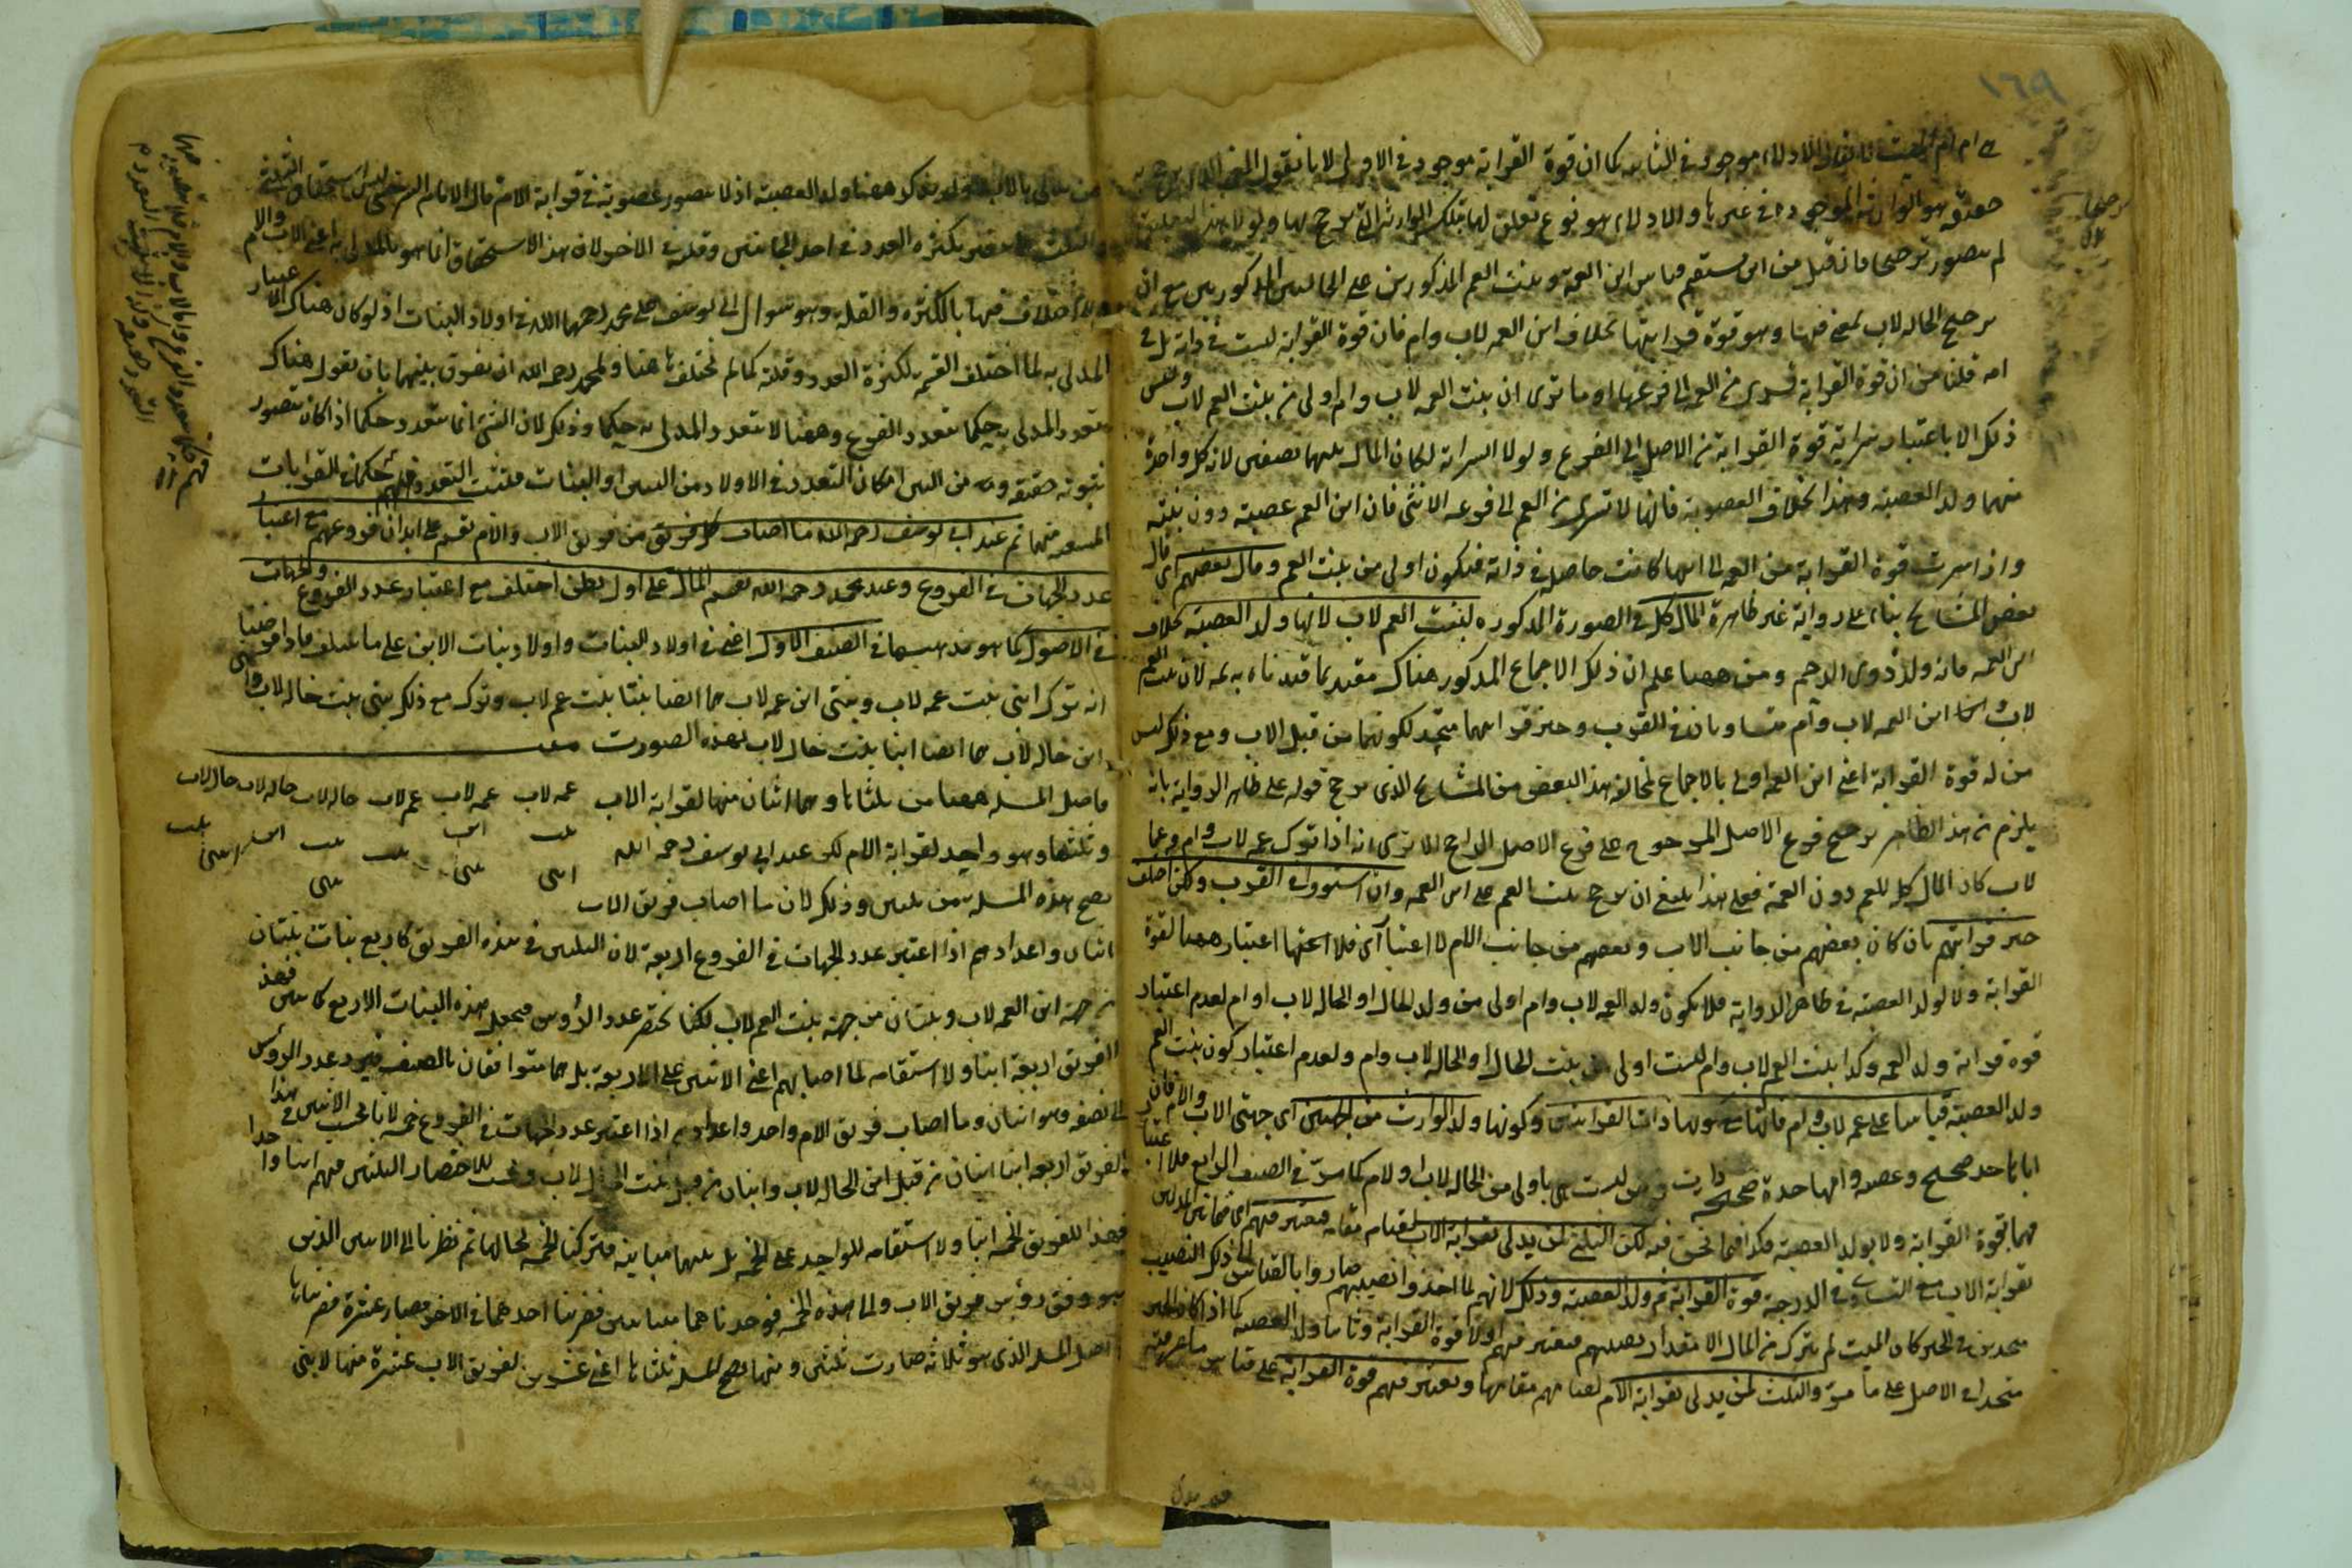 ١٦٩
ام الميت فان قيل الادلاء موجود في الثانية كما ان قوة القرابة موجودة في الاولى لانا نقول
هو الوارثة الموجودة في غيرها والادلاء هو نوع تعلق لها بتلك الوارثة التي ترجح بها ولولا هذا التعلق
لم يتصور ترجيحا فان قيل من اين يستقيم قياس ابن العمة وبنت العم المذكورين على الخالتين المذكورتين مع ان
ترجيح الخالة لاب لمعنى فيها وهو قوة قرابتها بخلاف ابن العمة لاب وام فان قوة القرابة ليست في ذاته بل في
امه قلنا ان قوة القرابة تسرى من العمة الى فرعها او ما ترى ان بنت العمة لاب وام اولى من بنت العم لاب وليس
ذلك الا باعتبار سراية قوة القرابة من الاصل الى الفرع ولولا السراية لكان المال بينهما نصفين لان كل واحدة
منهما ولد العصبة وهذا بخلاف العصوبة فانها لا تسرى من العم الى فرعه الانثى فان ابن العم عصبة دون بنته
واذا سرت قوة القرابة من العمة الى ابنها كانت حاصلة في ذاته فيكون اولى من بنت العم وقال بعضهم اى قال
بعض المشايخ بناء على رواية غير ظاهرة المال كله في الصورة المذكورة لبنت العم لاب لانها ولد العصبة بخلاف
ابن العمة فانه ولد ذوى الرحم ومن ههنا علم ان ذلك الاجماع المذكور هناك مقيد بما قيدناه به ثمه لان بنت العم
لاب وابن العمة لاب وام متساويان في القرب وحيز قرابتهما متحد لكونهما من قبل الاب ومع ذلك ليس
من له قوة القرابة اعنى ابن العمة اولى بالاجماع لمخالفة هذا البعض من المشايخ الذى يرجح قوله على ظاهر الرواية بانه
يلزم من هذا الظاهر ترجيح فرع الاصل المرجوح على فرع الاصل الراجح الا ترى انه اذا ترك عمة لاب وام وعما
لاب كان المال كله للعم دون العمة فعلى هذا ينبغى ان يرجح بنت العم على ابن العمة وان استووا في القرب ولكن اختلف
حيز قرابتهم بان كان بعضهم من جانب الاب وبعضهم من جانب الام فلا اعتبار ههنا لقوة
القرابة ولا لولد العصبة في ظاهر الرواية فلا يكون ولد العمة لاب وام اولى من ولد الخال او الخالة لاب او ام لعدم اعتبار
قوة قرابة ولد العمة وكذا بنت العم لاب وام ليست اولى من بنت الخال او الخالة لاب وام ولعدم اعتبار كون بنت العم
ولد العصبة قياسا على عمة لاب وام فانها مع كونها ذات القرابتين وكونها ولد الوارث من الجهتين اى جهتى الاب والام فان
اباها جد صحيح وعصبة وامها جدة صحيحة وارثة ليست هى باولى من الخالة لاب او لام كما مر في الصنف الرابع فلا اعتبار
فيهما قوة القرابة ولا بولد العصبة فكذا فيما نحن فيه لكن الثلثين لمن يدلى بقرابة الاب لقيامه مقامه فيعتبر فيهم
بقرابة الاب مع التساوى في الدرجة قوة القرابة ثم ولد العصبة وذلك لانهم لما اخذوا نصيبهم صاروا بالقياس الى ذلك النصيب
متحدين في الحيز كان الميت لم يترك من المال الا مقدار نصيبهم فيعتبر فيهم اولا قوة القرابة وثانيا ولد العصبة كما اذا كان الحيز
متحدا في الاصل على ما مر والثلث لمن يدلى بقرابة الام لقيامهم مقامها ويعتبر فيهم قوة القرابة على قياس ما عرفته
من يدلى بالاب ولم يذكر ههنا ولد العصبة اذ لا يتصور عصوبة في قرابة الام قال الامام السرخسى ليس استحقاق الثلثين
والثلث يتغير بكثرة العدد في احد الجانبين وقلته في الاخر لان هذا الاستحقاق انما هو بالمدلى به اعنى الاب والام
ولا اختلاف فيهما بالكثرة والقلة وهو سؤال ابى يوسف على محمد رحمهما الله في اولاد البنات اذ لو كان هناك الاعتبار
للمدلى به لما اختلف القسمة لكثرة العدد وقلته كما لم تختلف ههنا ولمحمد رحمه الله ان يفرق بينهما بان يقول هناك
يتعدد المدلى به حكما بتعدد الفرع وههنا لا يتعدد المدلى به حكما وذلك لان الشئ انما يتعدد حكما اذا كان يتصور
ثبوته حقيقة وثمه من البين امكان التعدد في الاولاد من البنين او البنات فيثبت التعدد فيهم حكما في القرابات
ثم عند ابى يوسف رحمه الله ما اصاب كل فريق من فريق الاب والام يقسم على ابدان فروعهم مع اعتبار
عدد الجهات في الفروع وعند محمد رحمه الله يقسم المال على اول بطن اختلف مع اعتبار عدد الفروع والجهات
في الاصول كما هو مذهبهما في الصنف الاول اعنى في اولاد البنات واولاد بنات الابن على ما سلف فاذا فرضنا
انه ترك ابنى بنت عمة لاب وبنتى ابن عمة لاب هما ايضا بنتا بنت عم لاب وترك مع ذلك بنتى بنت خالة لاب وابنى
ابن خالة لاب هما ايضا ابنا بنت خال لاب بهذه الصورة
عمة لاب عمة لاب عم لاب خالة لاب خالة لاب خال لاب
بنت ابن بنت بنت ابن بنت
ابنى بنتى بنتى ابنى
فاصل المسئلة ههنا من ثلثة وهما اثنان منها لقرابة الاب
وثلثها وهو واحد لقرابة الام لكن عند ابى يوسف رحمه الله
تصح هذه المسئلة من ثلثين وذلك لان ما اصاب فريق الاب
اثنان واعدادهم اذا اعتبر عدد الجهات في الفروع اربعة لان البنتين في هذه الفريق كاربع بنات بنتان
من جهة ابن العمة لاب وبنتان من جهة بنت العم لاب لكنا نختصر عدد الرؤس فنجعل هذه البنات الاربع كابنين فهذا
الفريق اربعة ابناء ولا استقامة لما اصابهم اعنى الاثنين على الاربعة بل هما متوافقان بالنصف فيرد عدد الرؤس
الى نصفه وهو اثنان وما اصاب فريق الام واحد واعدادهم اذا اعتبر عدد الجهات في الفروع خمسة لانا نحسب الابنين في هذا
الفريق اربعة ابناء ابنان من قبل ابن الخالة لاب وابنان من قبل بنت الخال لاب ونحسب للاختصار البنتين فيهم ابنا واحدا
فهذا الفريق خمسة ابناء ولا استقامة للواحد على الخمسة بل بينهما مباينة فتركنا الخمسة بحالها ثم نظرنا الى الاثنين الذين
هو وفق رؤس فريق الاب والى هذه الخمسة فوجدناهما متباينين فضربنا احدهما في الاخر فصار عشرة فضربناها
في اصل المسئلة الذى هو ثلاثة صارت ثلثين ومنها تصح المسئلة ثلثاها اعنى عشرين لفريق الاب عشرة منها لابنى